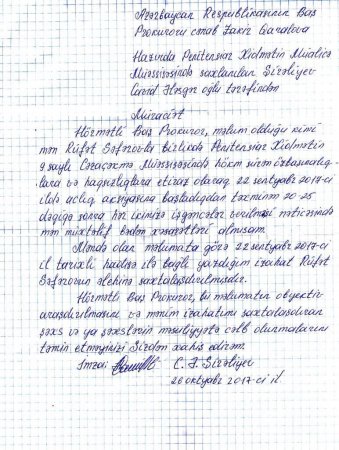 Azərbaycan Respublikasının Baş
Prokuroru cənab Zakir Qaralova
Hazırda Penitensiar Xidmətin Müalicə
Müəssisəsində saxlanılan Şirəliyev
Cavid Əsgər oğlu tərəfindən
Müraciət
Hörmətli Baş Prokuror, məlum olduğu kimi
mən Rüfət Səfərovla birlikdə Penitensiar Xidmətin
9 saylı Cəzaçəkmə Müəssisəsində hökm sürən özbaşınalıq-
lara və haqsızlıqlara etiraz olaraq 22 sentyabr 2017-ci
ildə aclıq aksiyasına başladıqdan təxminən 20-25
dəqiqə sonra hər ikimizə işgəncələr verilməsi nəticəsində
mən müxtəlif bədən xəsarətləri almışam.
Məndə olan məlumata görə 22 sentyabr 2017-ci
il tarixli hadisə ilə bağlı yazdığım izahat Rüfət
Səfərovun əlehinə saxtalaşdırılmışdır.
Hörmətli Baş Prokuror, bu məlumatın obyektiv
araşdırılmasını və mənim izahatımı saxtalaşdıran
şəxs və ya şəxslərin məsuliyyətə cəlb olunmalarını
təmin etməyinizi Sizdən xahiş edirəm.
İmza: C. Ə. Şirəliyev
26 oktyabr 2017-ci il.